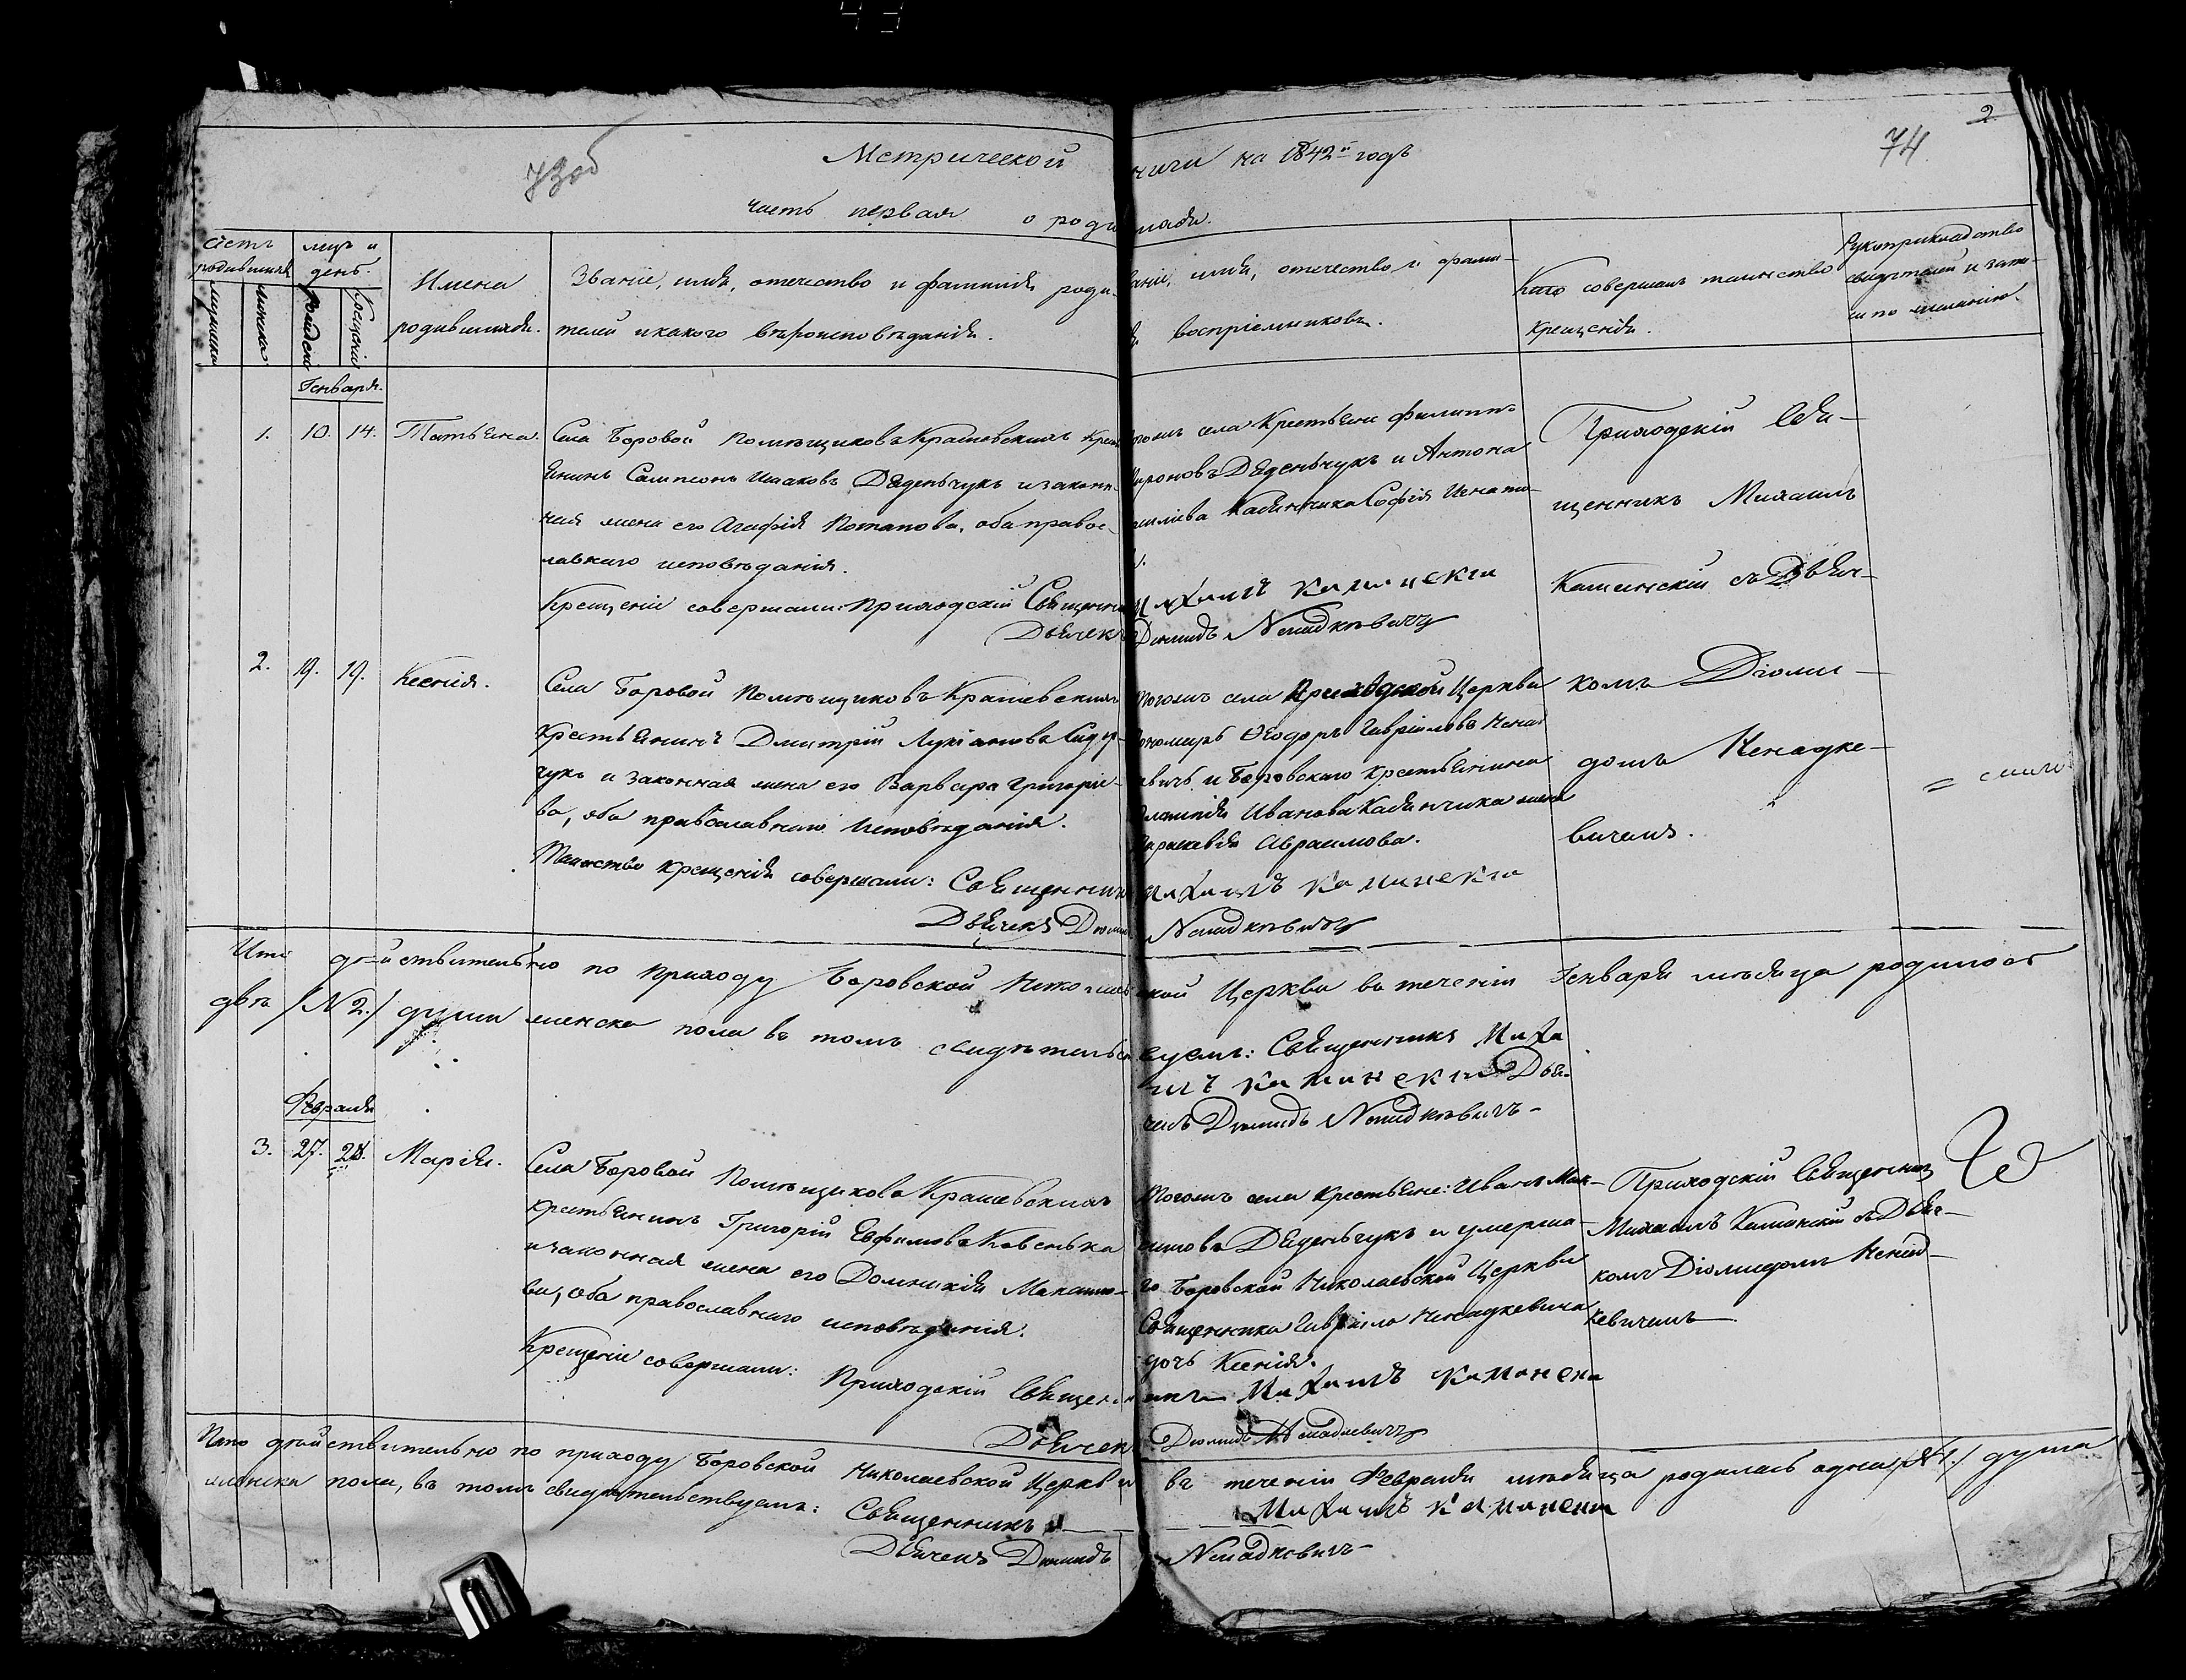 43
2
73об
74
Метрической книги на 1842й годъ
часть первая о родившихся.
Счетъ родившихся
мужска
женска
мцъ и день.
рожденія
крещенія
Имена
родившихся.
Званіе, имя, отечество и фамилія роди-
телей и какого вѣроисповѣданія.
званіе, имя, отечество и фами-
лія воспріемниковъ.
Кто совершалъ таинство
крещенія.
Рукоприкладство
свидѣтелей
по желанію.
Генваря.
1. 10. 14. Татьяна.
Села Боровой Помѣщиковъ Крашевскихъ Крест-
янинъ Сампсонъ Исаковъ Дяденьчукъ и закон-
ная жена его Агафія Потапова, оба правос-
лавнаго исповѣданія.
Крещеніе совершали: Приходскій Священникъ
Дьячекъ
тогожъ села Крестьяне Филиппъ
Мироновъ Дяденьчукъ и Антона
Кабанчика Софія Игнаті-
Михаилъ Каминскій
Діомидъ Ненадкѣвичъ
Приходскій Свя-
щенникъ Михаилъ
Каминскій съ Дьяч-
комъ Діоми-
домъ Ненадке-
вичемъ.
2. 19. 19. Ксенія.
Села Боровой Помѣщиковъ Крашевскихъ
Крестьянинъ Дмитрій Лукіановъ Сидор-
чукъ и законная жена его Варвара Григоріе-
ва, оба православнаго исповѣданія.
Таинство крещенія совершали: Священникъ
Дьячекъ Діомидъ
тогожъ села Приходской Церкви
пономарь Ѳеодоръ Гавріиловъ Ненад-
кевичъ и Боровскаго крестьянина
Иванова Кабанчика жена
Параскевія Авраамова.
Михаилъ Каминскій
Ненадкѣвичъ
Итого дѣйствительно по приходу Боровской Николаевской Церкви въ теченіи Генваря мѣсяца родилось
двѣ /№ 2./ души женска пола въ томъ свидѣтельствуемъ: Священникъ Миха
илъ Каминскій Дья-
чекъ Діомидъ Ненадкѣвичъ
Февраля
3. 27. 28. Марія.
Села Боровой Помѣщиковъ Крашевскихъ
крестьянинъ Григорій Евфимовъ Ковенька
и законная жена его Домникія Максимо-
ва, оба православнаго исповѣданія.
Крещеніе совершали: Приходскій Священ
Дьячекъ
тогожъ села крестьяне: Иванъ Мак-
симовъ Дяденьчукъ и умерша-
го Боровской Николаевской Церкви
Священника Гавріила Ненадкевича
дочь Ксенія.
никъ Михаилъ Каминскій
Діомидъ Ненадкевичъ
Приходскій Священникъ
Михаилъ Каминскій съ Дьяч-
комъ Діомидомъ Ненад-
кевичемъ
Итого дѣйствительно по приходу Боровской Николаевской Церкви въ теченіи Февраля мѣсяца родилась одна /№ 1./ душа
женска пола, въ томъ свидѣтельствуемъ: Священникъ Михаилъ Каминскій
Дьячекъ Діомидъ Ненадкевичъ